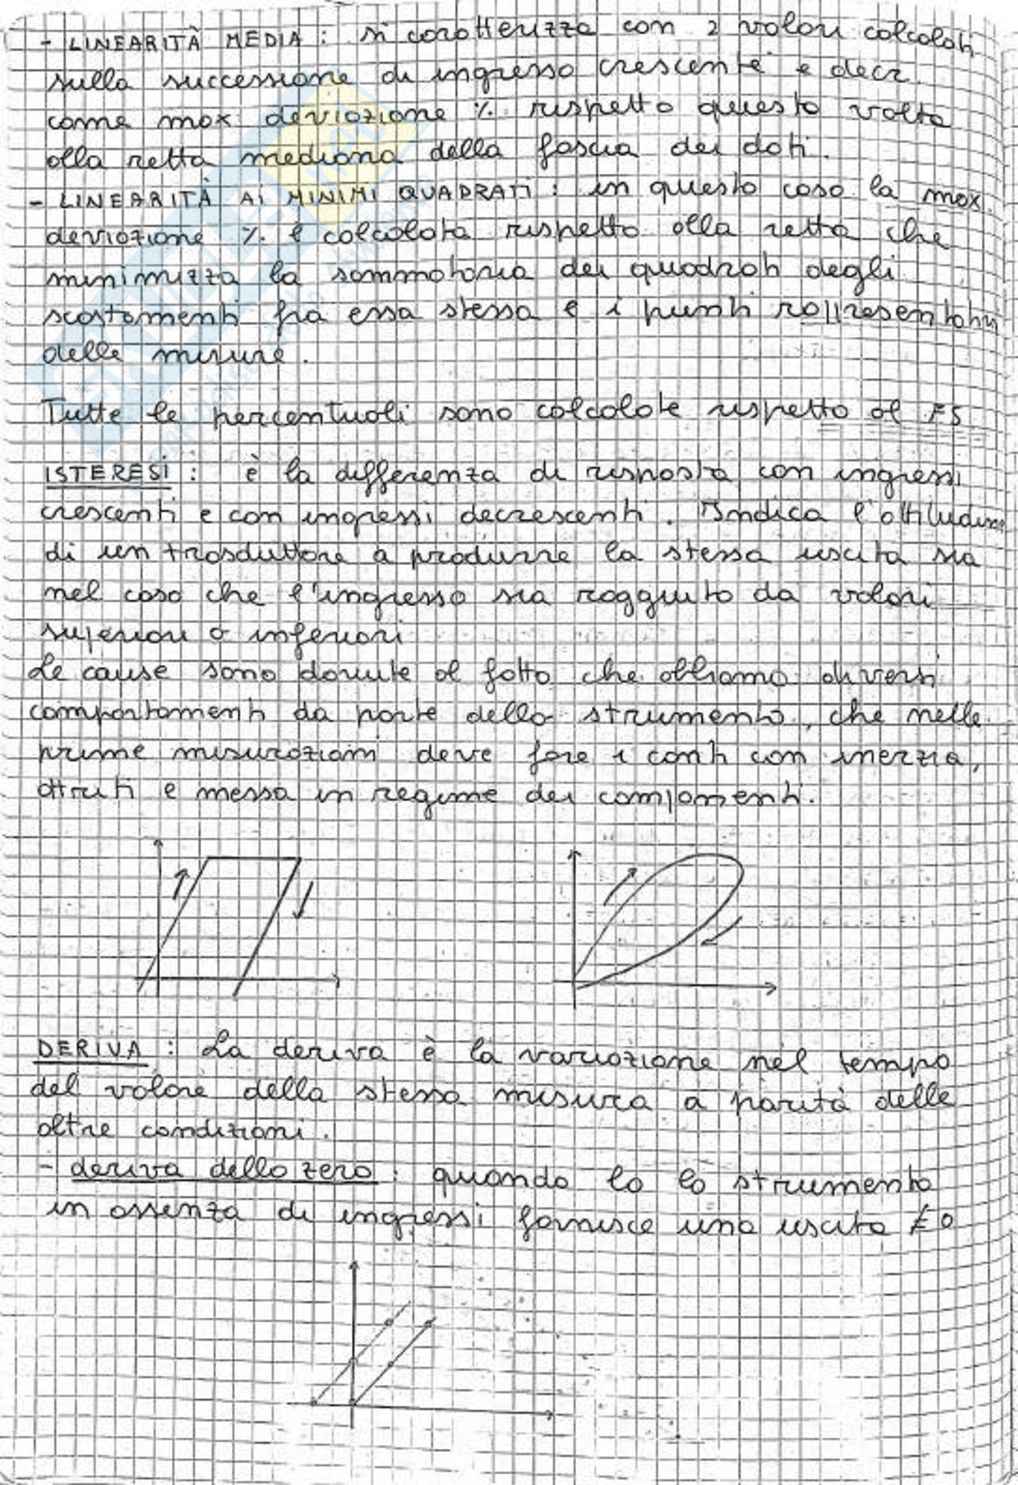 - LINEARITÀ MEDIA : si caratterizza con 2 valori calcolati
sulla successione di ingresso crescente e decr.
come max deviazione % rispetto questa volta
alla retta mediana della fascia dei dati.
- LINEARITÀ AI MINIMI QUADRATI : in questo caso la max.
deviazione % è calcolata rispetto alla retta che
minimizza la sommatoria dei quadrati degli
scostamenti fra essa stessa e i punti rappresentativi
delle misure.
Tutte le percentuali sono calcolate rispetto al FS
ISTERESI : è la differenza di risposta con ingressi
crescenti e con ingressi decrescenti. Indica l'attitudine
di un trasduttore a produrre la stessa uscita sia
nel caso che l'ingresso sia raggiunto da valori
superiori o inferiori
Le cause sono dovute al fatto che abbiamo diversi
comportamenti da parte dello strumento, che nelle
prime misurazioni deve fare i conti con inerzia,
attriti e messa in regime dei componenti.
DERIVA : La deriva è la variazione nel tempo
del valore della stessa misura a parità delle
altre condizioni.
- deriva dello zero : quando lo lo strumento
in assenza di ingressi fornisce una uscita ≠ 0